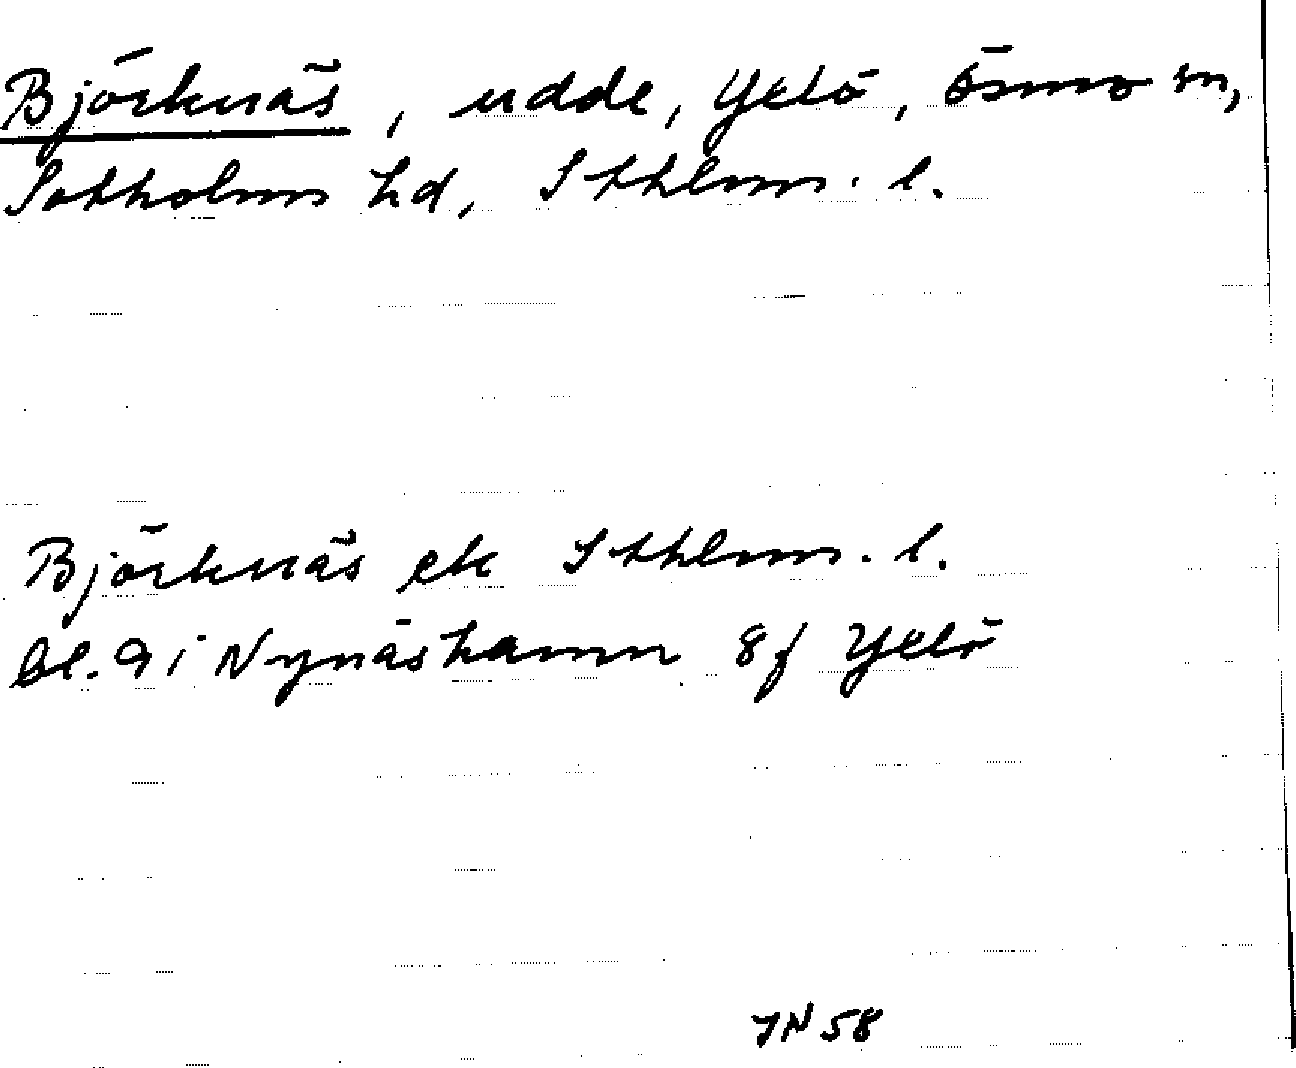 Björknäs, udde, Yxlö, Ösmo sn,
Sotholms hd, Sthlms. l.
Björknäs ek Sthlms. l.
bl. 9 i Nynäshamn 8f Yxlö
JN 58